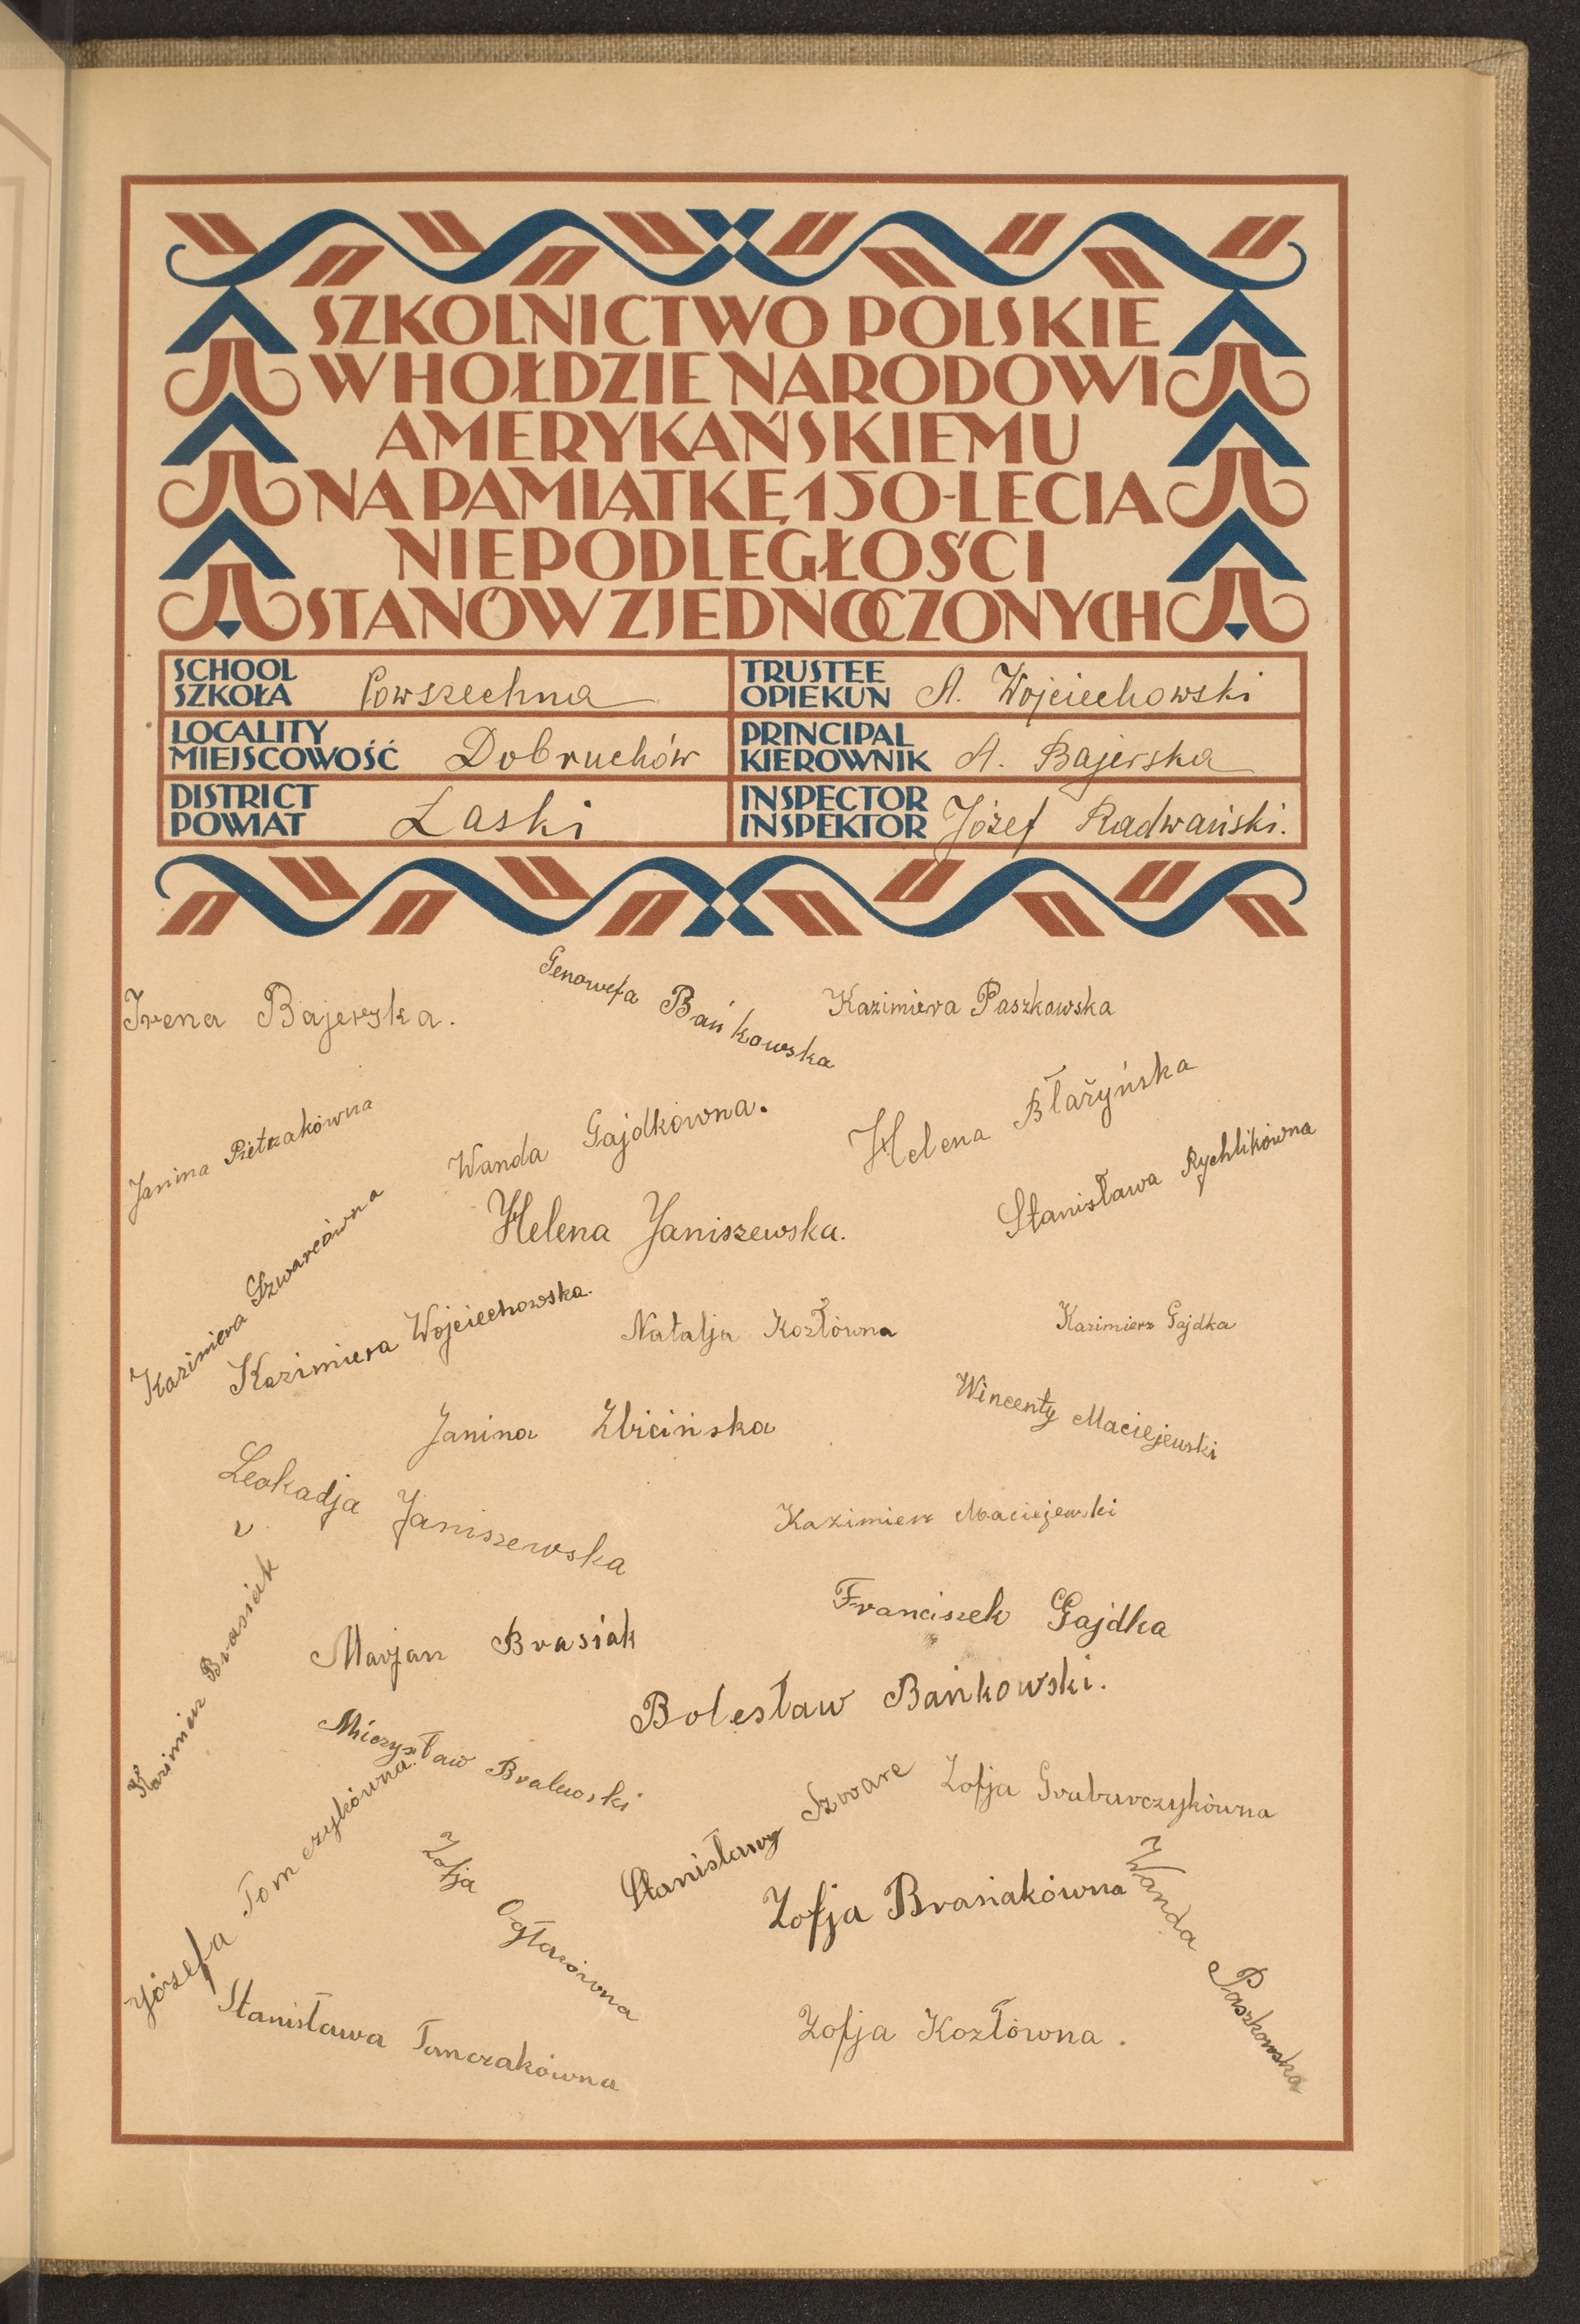 SZKOLNICTWO POLSKIE
W HOŁDZIE NARODOWI
AMERYKAŃSKIEMU
NA PAMIĄTKĘ 150-LECIA
NIEPODLEGŁOŚCI
STANÓW ZJEDNOCZONYCH
SCHOOL
SZKOŁA Powszechna
TRUSTEE
OPIEKUN A. Wojciechowski
LOCALITY
MIEJSCOWOŚĆ Dobruchów
PRINCIPAL
KIEROWNIK A. Bajerska
DISTRICT
POWIAT Łaski
INSPECTOR
INSPEKTOR Józef Radwański.
Irena Bajerska.
Genowefa Bańkowska
Kazimiera Paszkowska
Janina Pietrzakówna
Wanda Gajdkówna.
Helena Błażyńska
Stanisława Rychlikówna
Helena Janiszewska.
Kazimiera Szwarcówna
Kazimiera Wojciechowska.
Natalja Kozłówna
Kazimierz Gajdka
Janina Zbicińska
Wincenty Maciejewski
Leokadja Janiszewska
Kazimierz Maciejewski
Kazimierz Brasiak
Marjan Brasiak
Franciszek Gajdka
Bolesław Bańkowski.
Mieczysław Bralewski
Stanisław Szwarc
Zofja Grabarczykówna
Józefa Tomczykówna.
Zofja
Zofja Brasiakówna
Wanda Paszkowska
Stanisława Tomczakówna
Zofja Kozłówna.